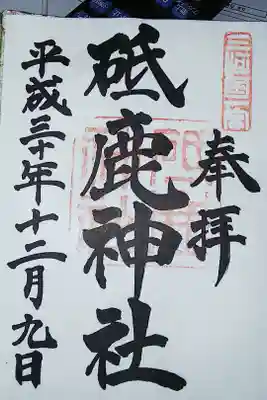 三河國一宮
奉拝
砥鹿神社
平成三十年十二月九日